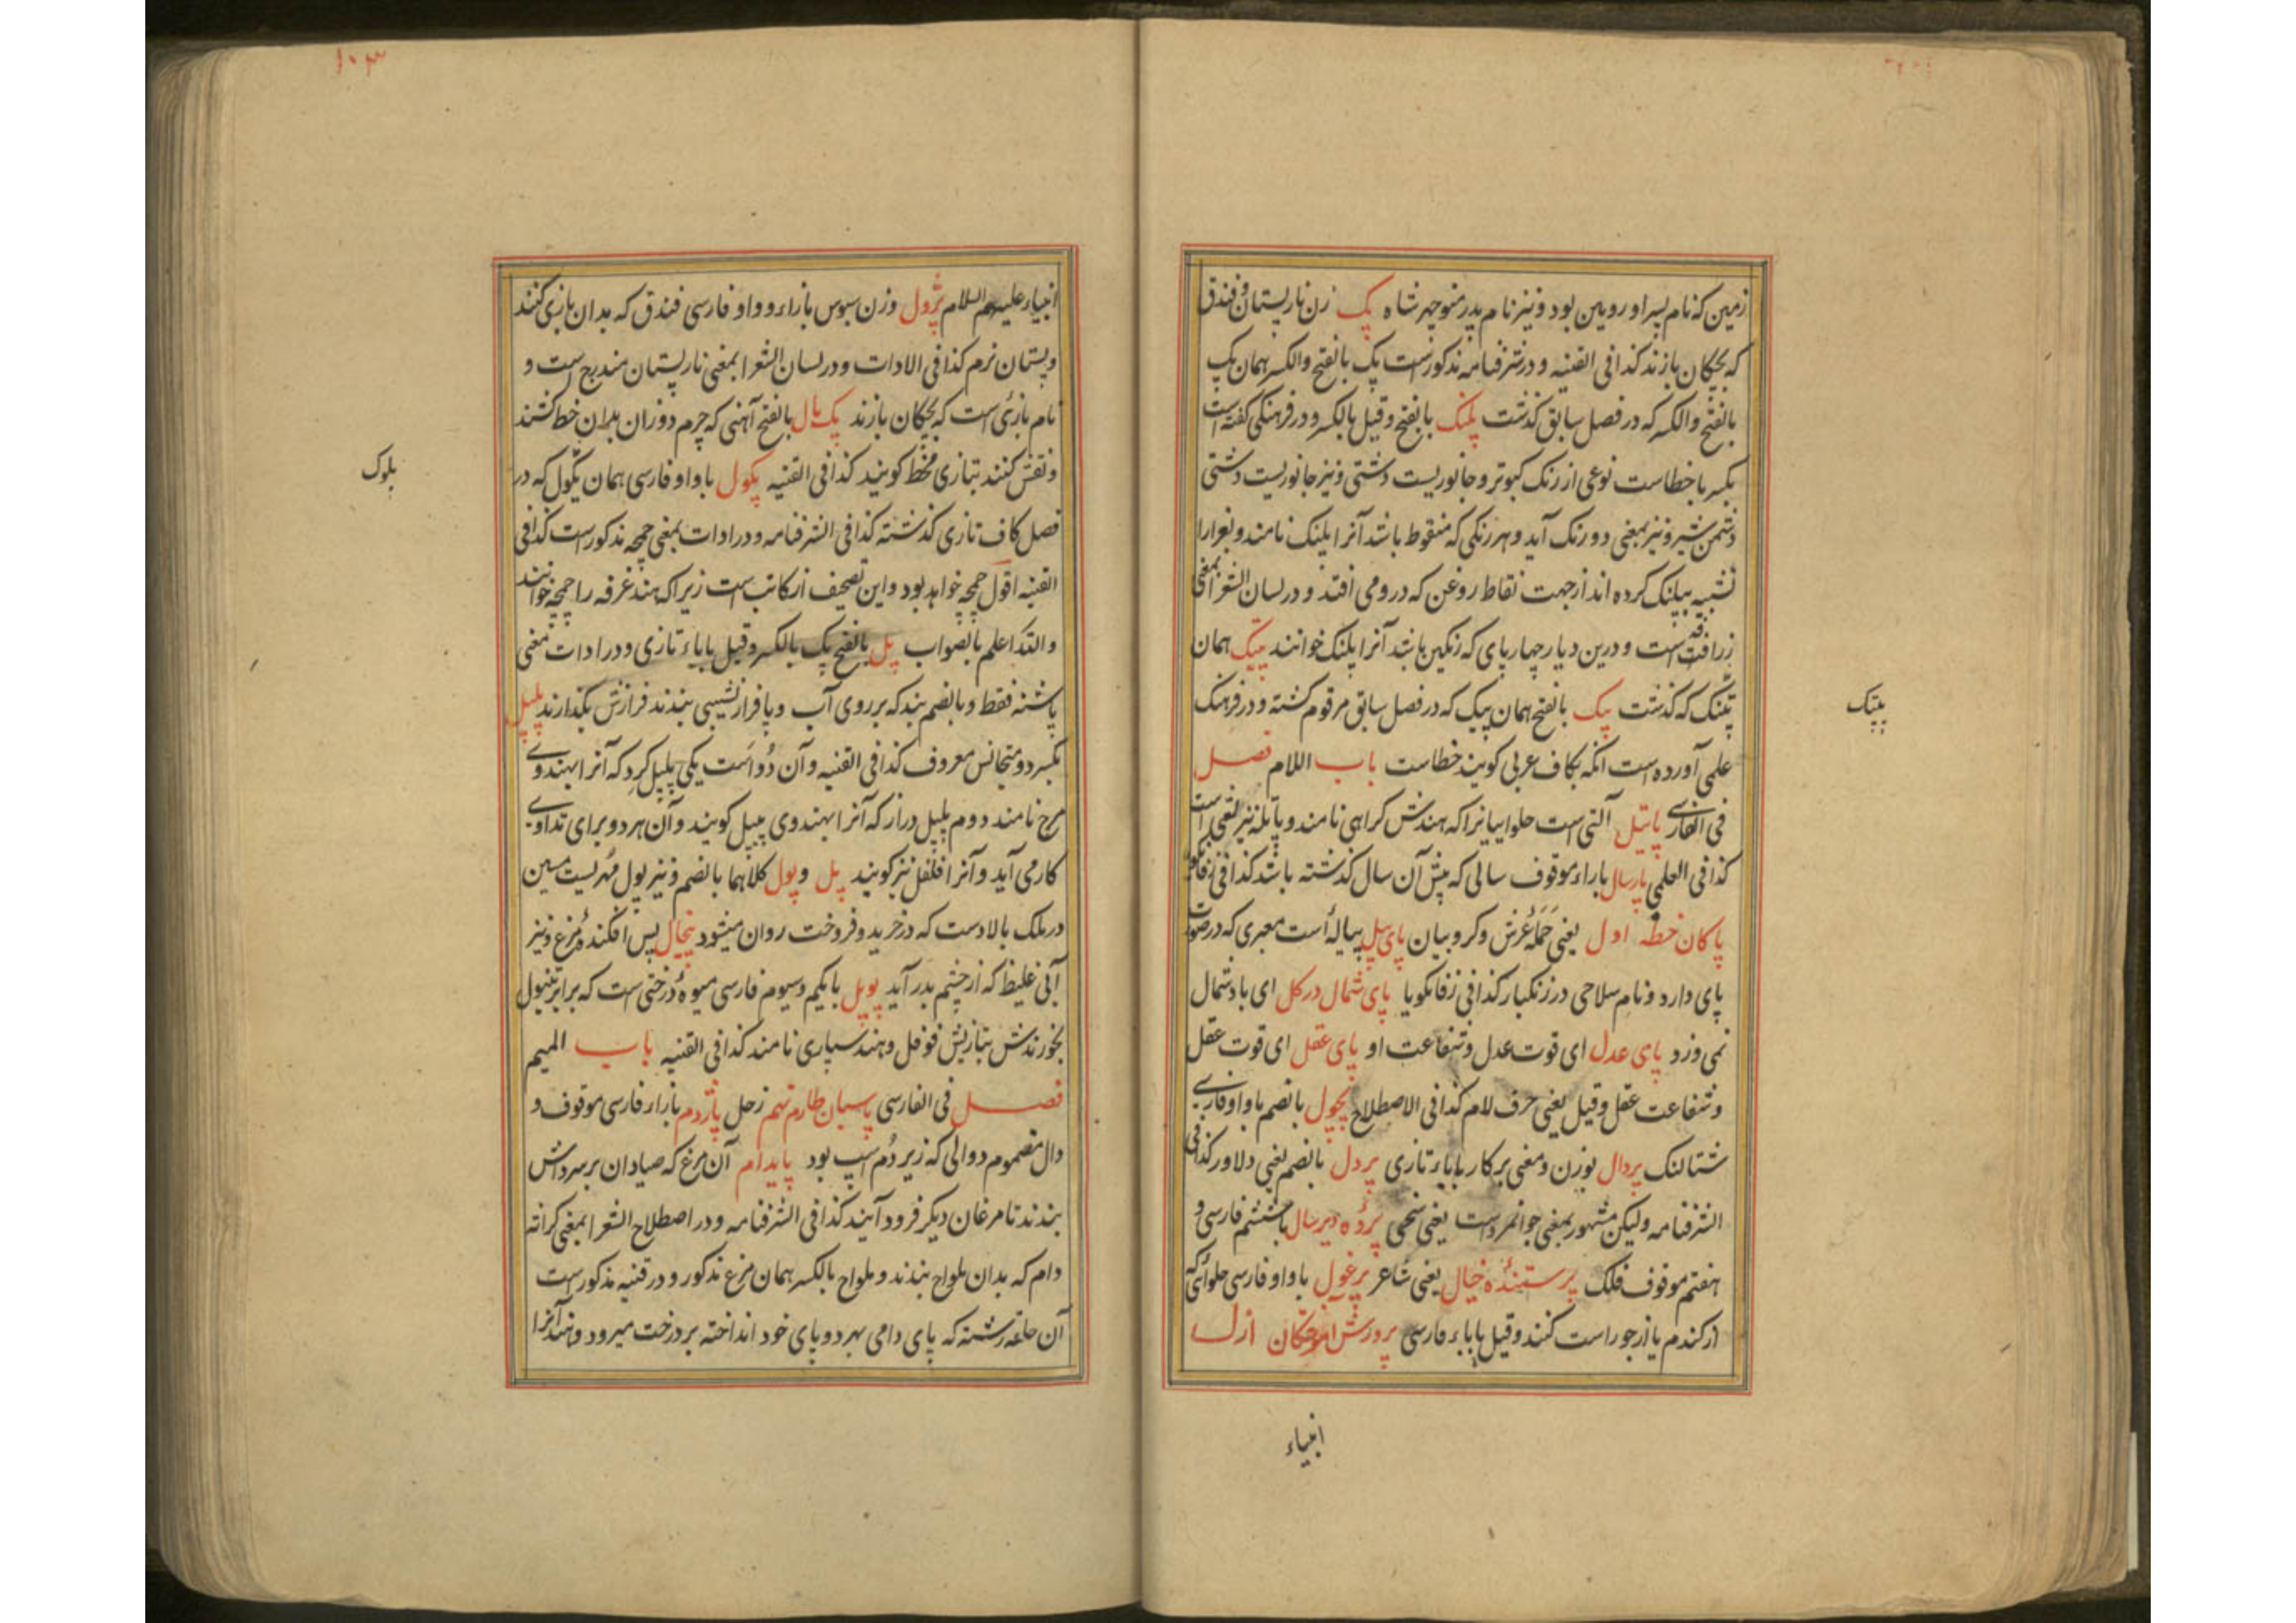 زمین که نام پسر او رویین بود و نیز نام پدر منوچهر شاه پک زن نارپستان و فندق
که بچکان بازند کذا فی القنیه و در شرفنامه مذکورست پک بالفتح والکسر همان پک
بالفتح والکسر که در فصل سابق کذشت پلنک بالفتح و قیل بالکسر و در فرهنکی کفته است
بکسر با خطاست نوعی از رنک کبوتر و جانوریست دشتی و نیز جانوریست دشتی
دشمن شیر و نیز بمعنی دو رنک آید و هر رنکی که منقوط باشد آنرا پلنک نامند و بغرا را
تشبیه بپلنک کرده اند از جهت نقاط روغن که درو می افتد و در لسان الشعرا بمعنی
زرافه است و درین دیار چهارپای که رنکین باشد آنرا پلنک خوانند پیتک همان
که کذشت پیک بالفتح همان پیک که در فصل سابق مرقوم کشته و در فرهنک
علمی آورده است آنکه بکاف عربی کویند خطاست باب اللام فصل
فی الفارسی پاتیل آلتی است حلواییانرا که هندش کراهی نامند و پاتله نیز
کذا فی العلمی پارسال باراء موقوف سالی که پیش آن سال کذشته باشد کذا فی
پاکان خطه اول یعنی حمله عرش و کروبیان پای پیل پیاله است معبری که در صورت
پای دارد و نام سلاحی در زنکبار کذا فی زفانکویا پای شمال در کل ای باد شمال
نمی وزد پای عدل ای قوت عدل و شفاعت او پای عقل ای قوت عقل
و شفاعت عقل و قیل یعنی حرف لام کذا فی الاصطلاح پجول بالضم با واو فارسی
شتالنک پردال بوزن و معنی پرکار بابای تازی پردل بالضم یعنی دلاور کذا فی
الشرفنامه ولیکن مشهور بمعنی جوانمردست یعنی سخی پرده دیرسال باششم فارسی و
هفتم موقوف فلک پرستنده خیال یعنی شاعر پرغول با واو فارسی حلوائی که
از کندم یا از جو راست کنند و قیل با باء فارسی پرورش آموختکان ازل
انبیاء
پیتک
۱۰۳
انبیاء علیهم السلام پژول وزن سبوس بازاء و واو فارسی فندق که بدان بازی کنند
و پستان نرم کذا فی الادات و در لسان الشعرا بمعنی نارپستان مندرج است و
نام بازی است که بچکان بازند پک مال بالفتح آهنی که چرم دوزان بدان خط کشند
و نقش کنند بتازی مخط کویند کذا فی القنیه پکول با واو فارسی همان بکول که در
فصل کاف تازی کذشته کذا فی الشرفنامه و در ادات بمعنی چمچه مذکورست کذا فی
القنیه اقول چمچه خواهد بود و این تصحیف از کاتب است زیرا که هند غرفه را چمچه خوانند
والله اعلم بالصواب پل بالفتح پک بالکسر و قیل باباء تازی و در ادات بمعنی
پاشنه فقط و بالضم بند که بر روی آب و یا فراز نشیبی بندند فرازش بکذارند پلپل
بکسر دو متجانس معروف کذا فی القنیه و آن دو است یکی پلپل کرد که آنرا بهندوی
مرچ نامند دوم پلپل دراز که آنرا بهندوی پیپل کویند و آن هر دو برای تداوی
کار می آید و آنرا فلفل نیز کویند پل و پول کلاهما بالضم و نیز پول مهریست مسین
در ملک بالادست که در خرید و فروخت روان میشود پیخال پس افکنده مرغ و نیز
آبی غلیظ که از چشم بدر آید پوپل با یکم و سیوم فارسی میوه درختی است که برابر تنبول
بخورندش بتازیش فوفل و هند سپاری نامند کذا فی القنیه باب المیم
فصل فی الفارسی پاسبان طارم نهم زحل پاژدم بازاء فارسی موقوف و
دال مضموم دوالی که زیر دم اسپ بود پایدام آن مرغ که صیادان بر سر دامش
بندند تا مرغان دیکر فرود آیند کذا فی الشرفنامه و در اصطلاح الشعرا بمعنی کرانه
دام که بدان ملواح بندند و ملواح بالکسر همان مرغ مذکور و در قنیه مذکورست
آن رشته که پای دامی بهر دو پای خود انداخته بر درخت میرود و آنرا
پلوک